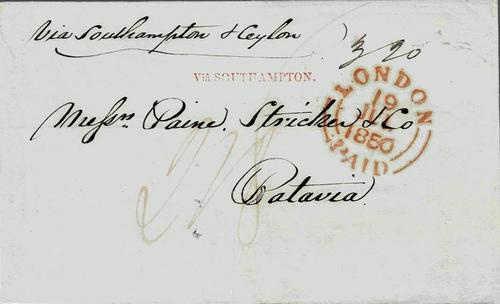 Via Southampton & Ceylon
3 20
VIA SOUTHAMPTON.
LONDON
19
1850
PAID
Messrs. Paine. Stricker & Co
Batavia